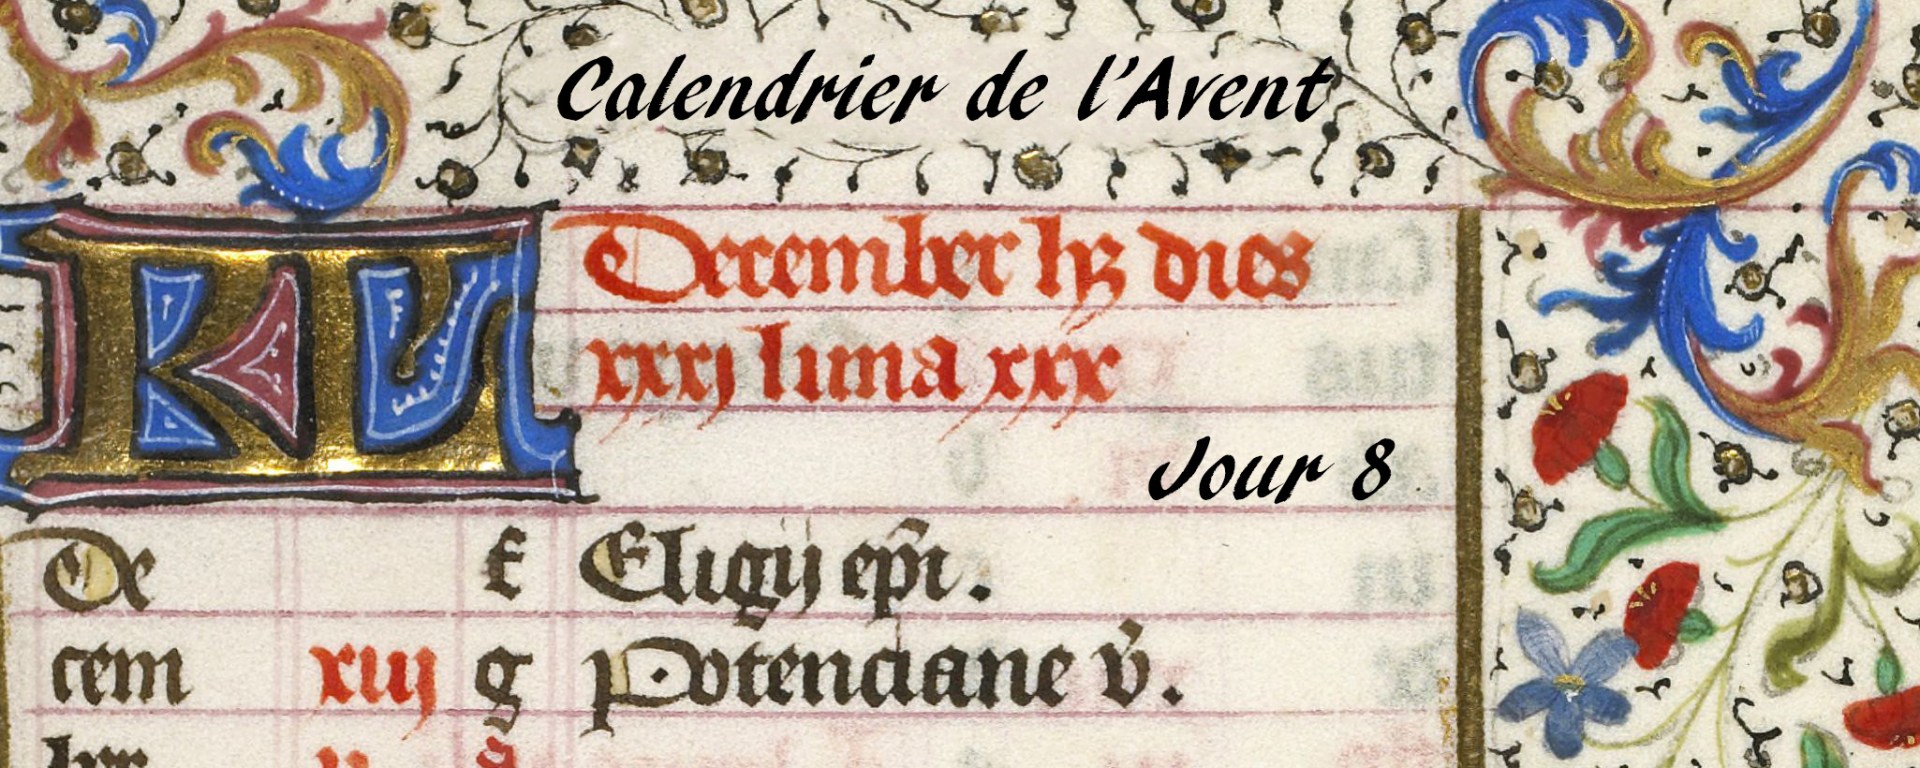 Calendrier de l'Avent
KL December hȝ dies
xxxj luna xxx
Jour 8
De f Eligij ep̄i.
cem xiij g Potenciane v̄.